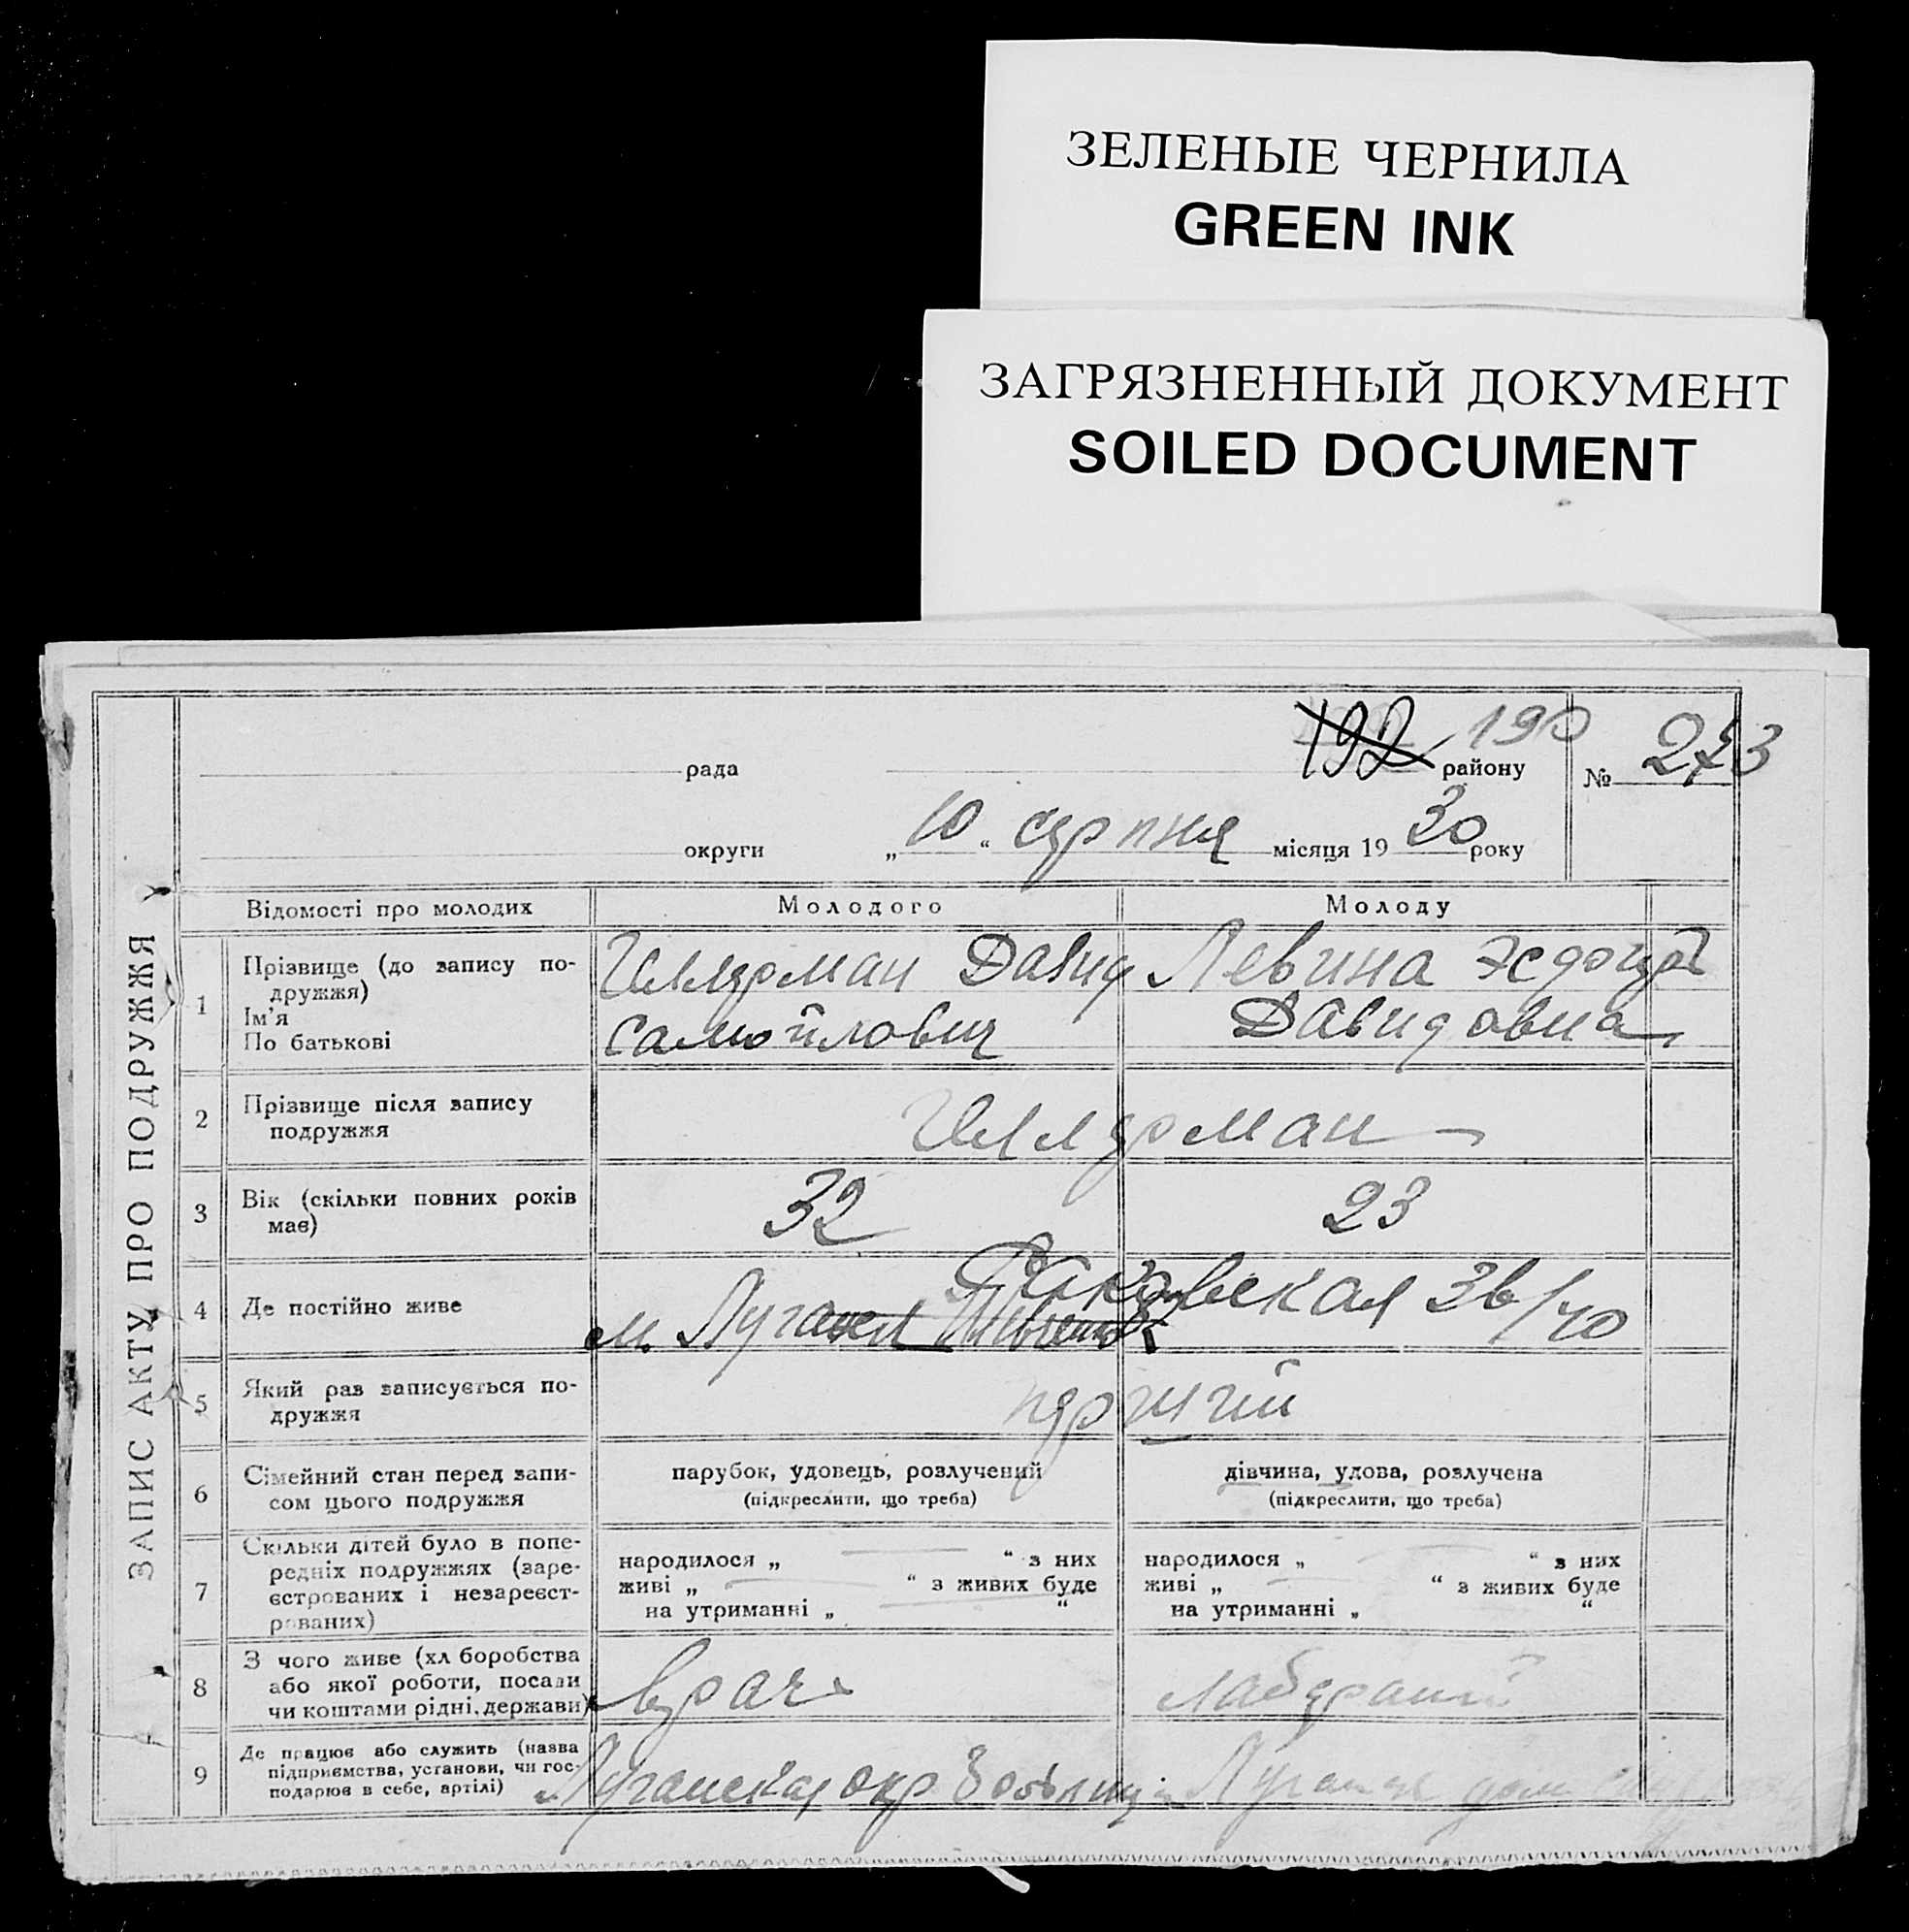 ЗЕЛЕНЫЕ ЧЕРНИЛА
GREEN INK
ЗАГРЯЗНЕННЫЙ ДОКУМЕНТ
SOILED DOCUMENT
ЗАПИС АКТУ ПРО ПОДРУЖЖЯ
192 190
рада району № 273
округи „10“ серпня місяця 1930 року
Відомості про молодих Молодого Молоду
1 Прізвище (до запису по-
дружжя)
Ім'я
По батькові
Давид
Самойлович
Левина
Давидовна
2 Прізвище після запису
подружжя
3 Вік (скільки повних років
має)
32 23
4 Де постійно живе
Раковская 36/40
м. Луганск
5 Який раз записується по-
дружжя
перший
6 Сімейний стан перед запи-
сом цього подружжя
парубок, удовець, розлучений
(підкреслити, що треба)
дівчина, удова, розлучена
(підкреслити, що треба)
7 Скільки дітей було в попе-
редніх подружжях (заре-
єстрованих і незареєст-
рованих)
народилося „ — “ з них
живі „ — “ з живих буде
на утриманні „ — “
народилося „ — “ з них
живі „ — “ з живих буде
на утриманні „ “
8 З чого живе (хл боробства
або якої роботи, посади
чи коштами рідні, держави)
врач
9 Де працює або служить (назва
підприємства, установи, чи гос-
подарює в себе, артілі)
Луганская окр